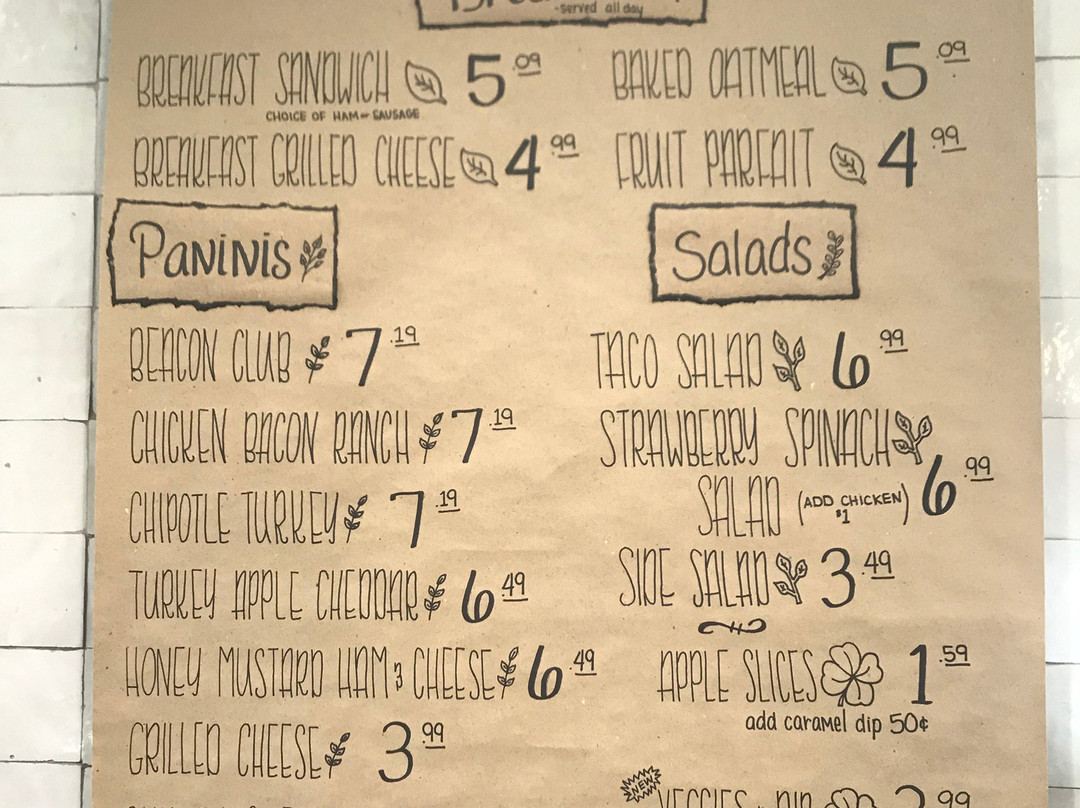 -served all day
BREAKFAST SANDWICH 5.09
CHOICE OF HAM or SAUSAGE
BREAKFAST GRILLED CHEESE 4.99
BAKED OATMEAL 5.09
FRUIT PARFAIT 4.99
Paninis
BEACON CLUB 7.19
CHICKEN BACON RANCH 7.19
CHIPOTLE TURKEY 7.19
TURKEY APPLE CHEDDAR 6.49
HONEY MUSTARD HAM & CHEESE 6.49
GRILLED CHEESE 3.99
Salads
TACO SALAD 6.99
STRAWBERRY SPINACH
SALAD (ADD CHICKEN) 6.99
$1
SIDE SALAD 3.49
APPLE SLICES 1.59
add caramel dip 50¢
NEW
VEGGIES DIP .99